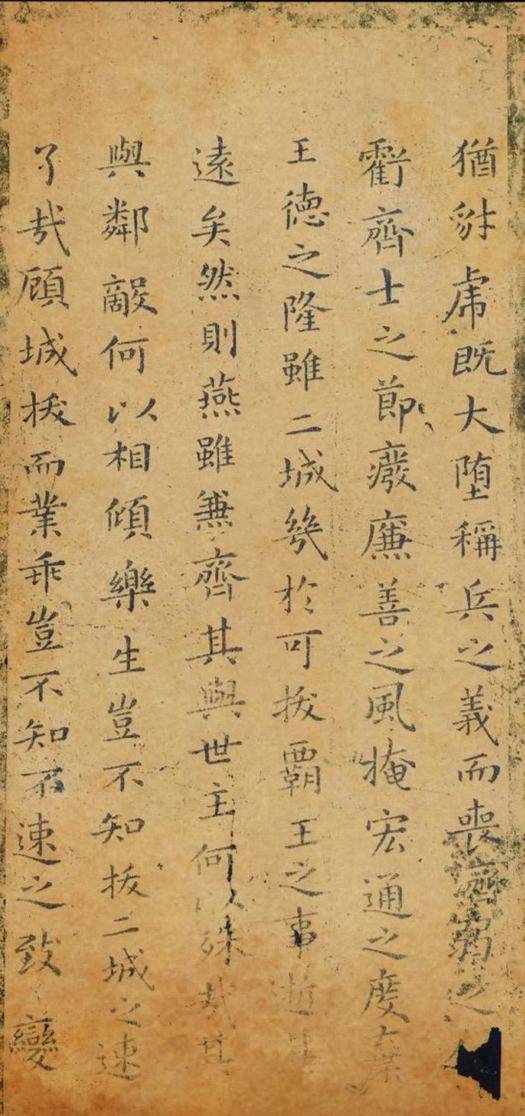 猶豺虎既大墮稱兵之義而喪濟弱之
虧齊士之節廢廉善之風掩宏通之度棄
王德之隆雖二城幾於可拔霸王之事逝其
遠矣然則燕雖兼齊其與世主何以殊哉其
與鄰敵何以相傾樂生豈不知拔二城之速
了哉顧城拔而業乖豈不知不速之致變